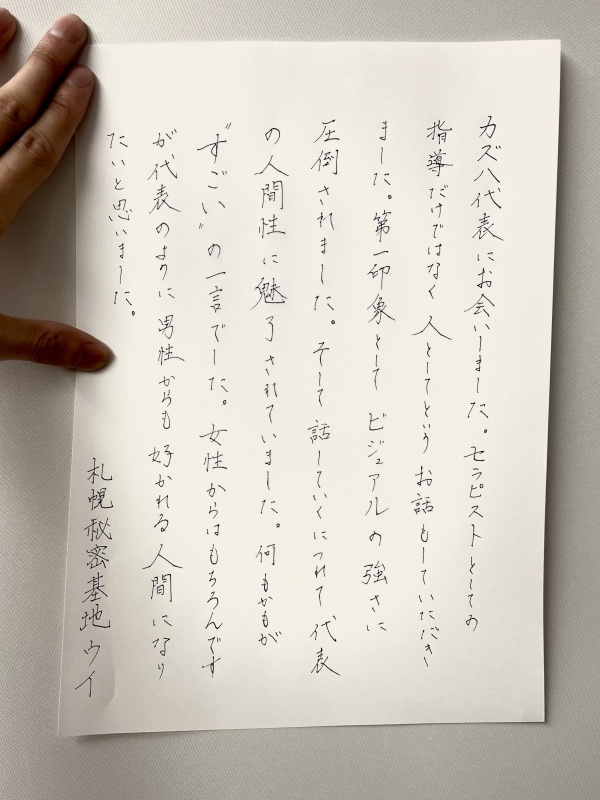 カズハ代表にお会いしました。セラピストとしての
指導だけではなく人としてというお話もしていただき
ました。第一印象としてビジュアルの強さに
圧倒されました。そして話していくにつれて代表
の人間性に魅了されていました。何もかもが
"すごい"の一言でした。女性からはもちろんです
が代表のように男性からも好かれる人間になり
たいと思いました。
札幌秘密基地 ウイ